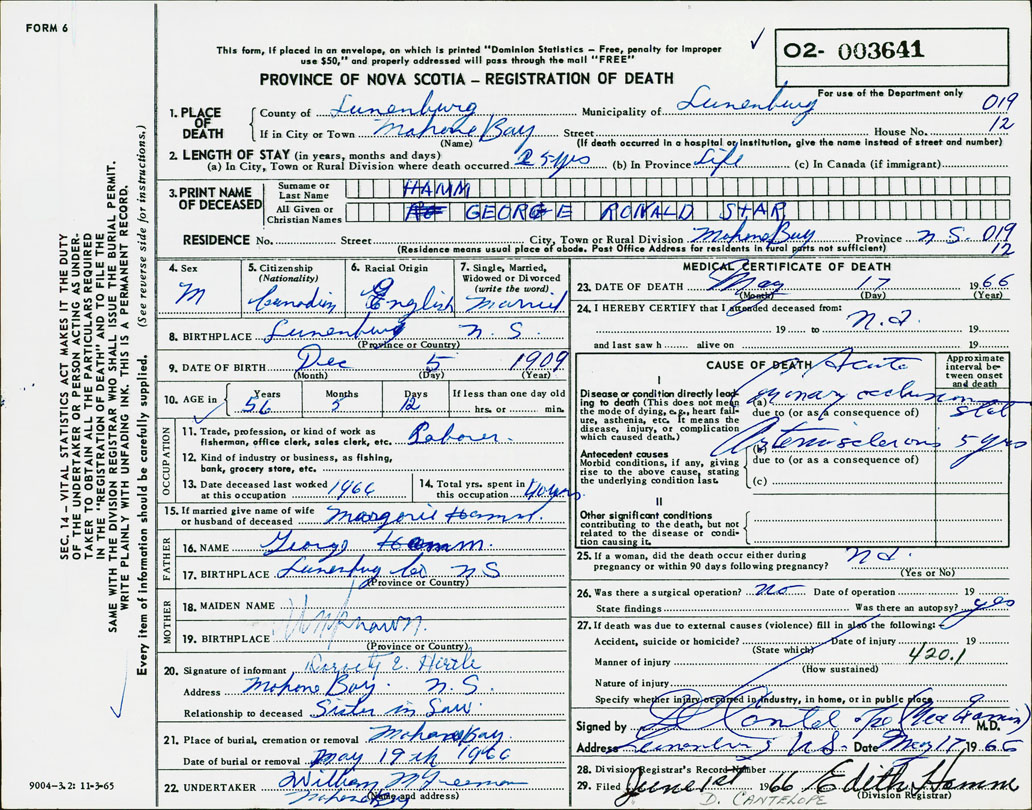 FORM 6
This form, if placed in an envelope, on which is printed "Dominion Statistics – Free, penalty for improper
use $50," and properly addressed will pass through the mail "FREE"
✓ 02- 003641
PROVINCE OF NOVA SCOTIA – REGISTRATION OF DEATH
For use of the Department only
1. PLACE OF DEATH County of Lunenburg Municipality of Lunenburg 019
If in City or Town Mahone Bay Street House No. 12
(Name) (If death occurred in a hospital or institution, give the name instead of street and number)
2. LENGTH OF STAY (in years, months and days)
(a) In City, Town or Rural Division where death occurred 25 yrs (b) In Province Life (c) In Canada (if immigrant)
3. PRINT NAME OF DECEASED Surname or Last Name HAMM
All Given or Christian Names GEORGE RONALD STAR
RESIDENCE No. Street City, Town or Rural Division Mahone Bay Province N S 019
(Residence means usual place of abode. Post Office Address for residents in rural parts not sufficient) 12
4. Sex M
5. Citizenship (Nationality) Canadian
6. Racial Origin English
7. Single, Married, Widowed or Divorced (write the word) Married
8. BIRTHPLACE Lunenburg N. S.
(Province or Country)
9. DATE OF BIRTH Dec 5 1909
(Month) (Day) (Year)
10. AGE in Years 56 Months 5 Days 12 If less than one day old hrs. or min.
OCCUPATION
11. Trade, profession, or kind of work as fisherman, office clerk, sales clerk, etc. Laborer.
12. Kind of industry or business, as fishing, bank, grocery store, etc.
13. Date deceased last worked at this occupation 1966
14. Total yrs. spent in this occupation 40 yrs
15. If married give name of wife or husband of deceased Margorie Hamm.
FATHER
16. NAME George Hamm.
17. BIRTHPLACE Lunenburg Co N S
(Province or Country)
MOTHER
18. MAIDEN NAME
19. BIRTHPLACE Unknown.
(Province or Country)
20. Signature of informant E. Hirtle
Address Mahone Bay. N.S.
Relationship to deceased Sister in Law.
21. Place of burial, cremation or removal Mahone Bay
Date of burial or removal May 19th 1966
22. UNDERTAKER William
Mahone Bay
(Name and address)
MEDICAL CERTIFICATE OF DEATH
23. DATE OF DEATH May 17 1966
(Month) (Day) (Year)
24. I HEREBY CERTIFY that I attended deceased from:
19 to N.A. 19
and last saw h alive on 19
CAUSE OF DEATH
Approximate interval between onset and death
I
Disease or condition directly leading to death (This does not mean the mode of dying, e.g., heart failure, asthenia, etc. It means the disease, injury, or complication which caused death.)
(a) Acute occlusion stat
due to (or as a consequence of)
Antecedent causes
Morbid conditions, if any, giving rise to the above cause, stating the underlying condition last.
(b) 5 yrs
due to (or as a consequence of)
(c)
II
Other significant conditions contributing to the death, but not related to the disease or condition causing it.
25. If a woman, did the death occur either during pregnancy or within 90 days following pregnancy? N A.
(Yes or No)
26. Was there a surgical operation? no Date of operation 19
State findings Was there an autopsy? yes
27. If death was due to external causes (violence) fill in also the following:
Accident, suicide or homicide? Date of injury 19
(State which)
Manner of injury 420.1
(How sustained)
Nature of injury
Specify whether injury occurred in industry, in home, or in public place
Signed by D Cantelope (Med Examin) M.D.
Address Lunenburg N.S. Date May 17 1966
28. Division Registrar's Record Number
29. Filed June 1st 1966 Edith Hamm
D. CANTELOPE (Division Registrar)
SEC. 14 – VITAL STATISTICS ACT MAKES IT THE DUTY
OF THE UNDERTAKER OR PERSON ACTING AS UNDER-
TAKER TO OBTAIN ALL THE PARTICULARS REQUIRED
IN THE "REGISTRATION OF DEATH" AND TO FILE THE
SAME WITH THE DIVISION REGISTRAR WHO SHALL ISSUE THE BURIAL PERMIT.
WRITE PLAINLY WITH UNFADING INK. THIS IS A PERMANENT RECORD.
Every item of information should be carefully supplied. (See reverse side for instructions.)
9004–3.2: 11-3-65